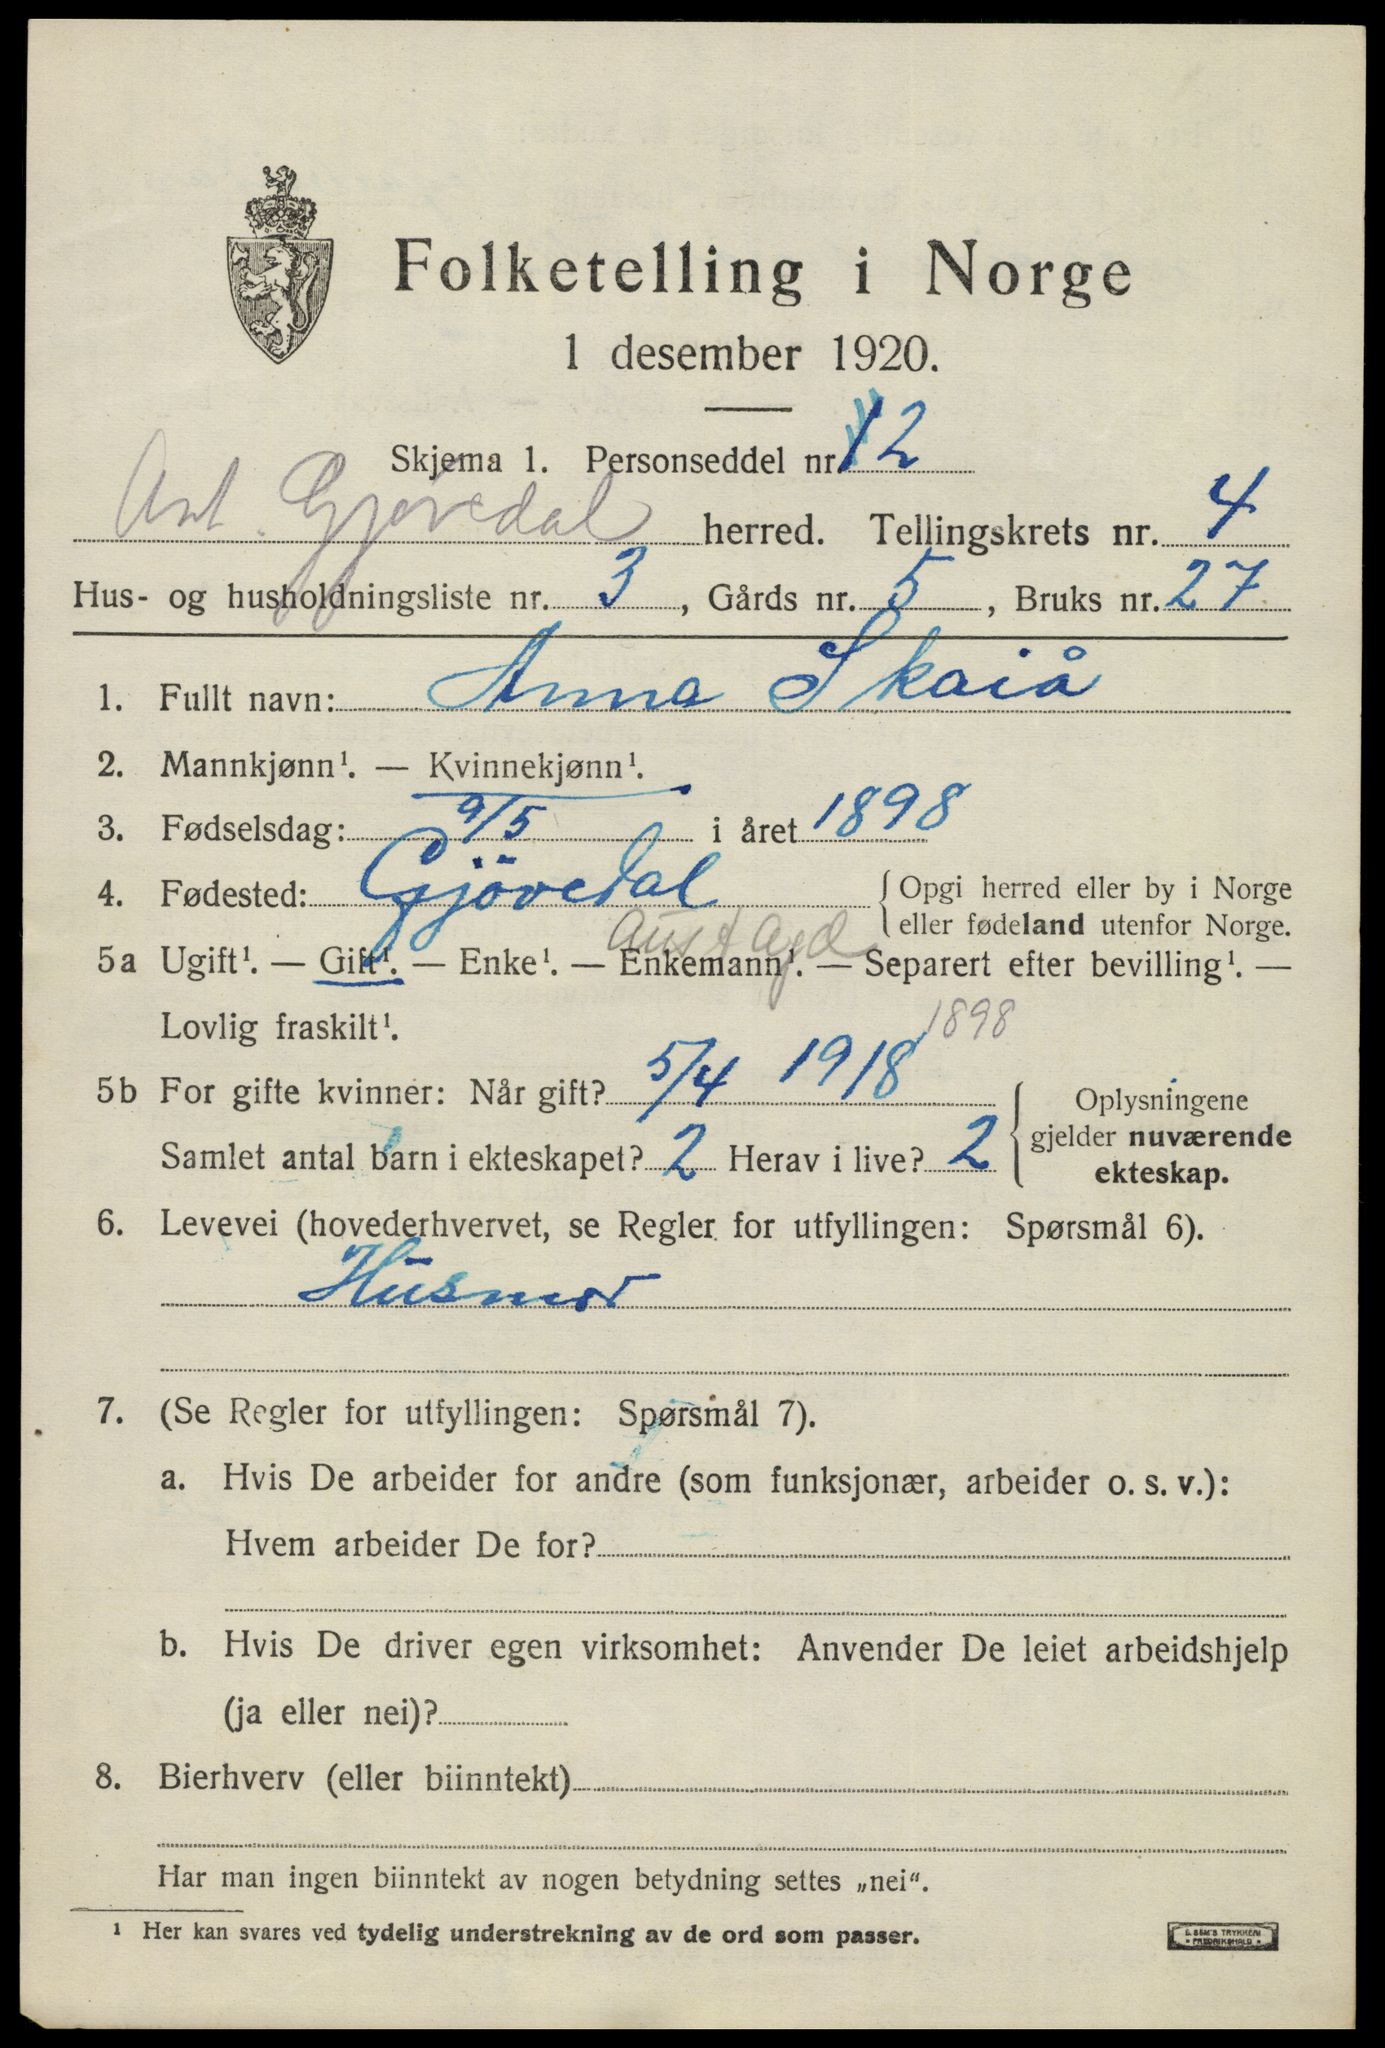 Folketelling i Norge
1 desember 1920.
Skjema 1. Personseddel nr. 12
Gjøvedal herred. Tellingskrets nr. 4
Hus- og husholdningsliste nr. 3, Gårds nr. 5, Bruks nr. 27
1. Fullt navn: Anna Skaiå
2. Mannkjønn¹. — Kvinnekjønn¹.
3. Fødselsdag: 9/5 i året 1898
4. Fødested: Gjövedal { Opgi herred eller by i Norge
eller fødeland utenfor Norge.
Aust Agd
5a Ugift¹. — Gift¹. — Enke¹. — Enkemann¹. — Separert efter bevilling¹. —
Lovlig fraskilt¹.
1898
5b For gifte kvinner: Når gift? 5/4 1918 { Oplysningene
gjelder nuværende
Samlet antal barn i ekteskapet? 2 Herav i live? 2
ekteskap.
6. Levevei (hovederhvervet, se Regler for utfyllingen: Spørsmål 6).
Husmor
7. (Se Regler for utfyllingen: Spørsmål 7).
a. Hvis De arbeider for andre (som funksjonær, arbeider o. s. v.):
Hvem arbeider De for?
b. Hvis De driver egen virksomhet: Anvender De leiet arbeidshjelp
(ja eller nei)?
8. Bierhverv (eller biinntekt)
Har man ingen biinntekt av nogen betydning settes „nei“.
¹ Her kan svares ved tydelig understrekning av de ord som passer.
TRYKKERI
FREDRIKSHALD